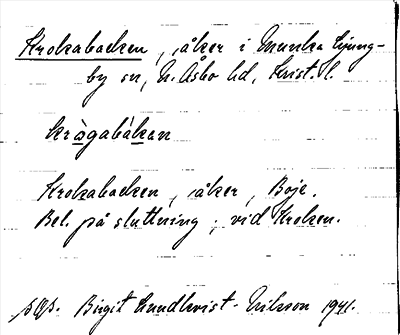 Krokabacken, åker i Munka Ljung-
by sn, N. Åsbo hd, Krist. l.
kràgabàkan
Krokabacken, åker, Boje.
Bel. på sluttning; vid Kroken.
Birgit Lundkvist-Nilsson 1941.